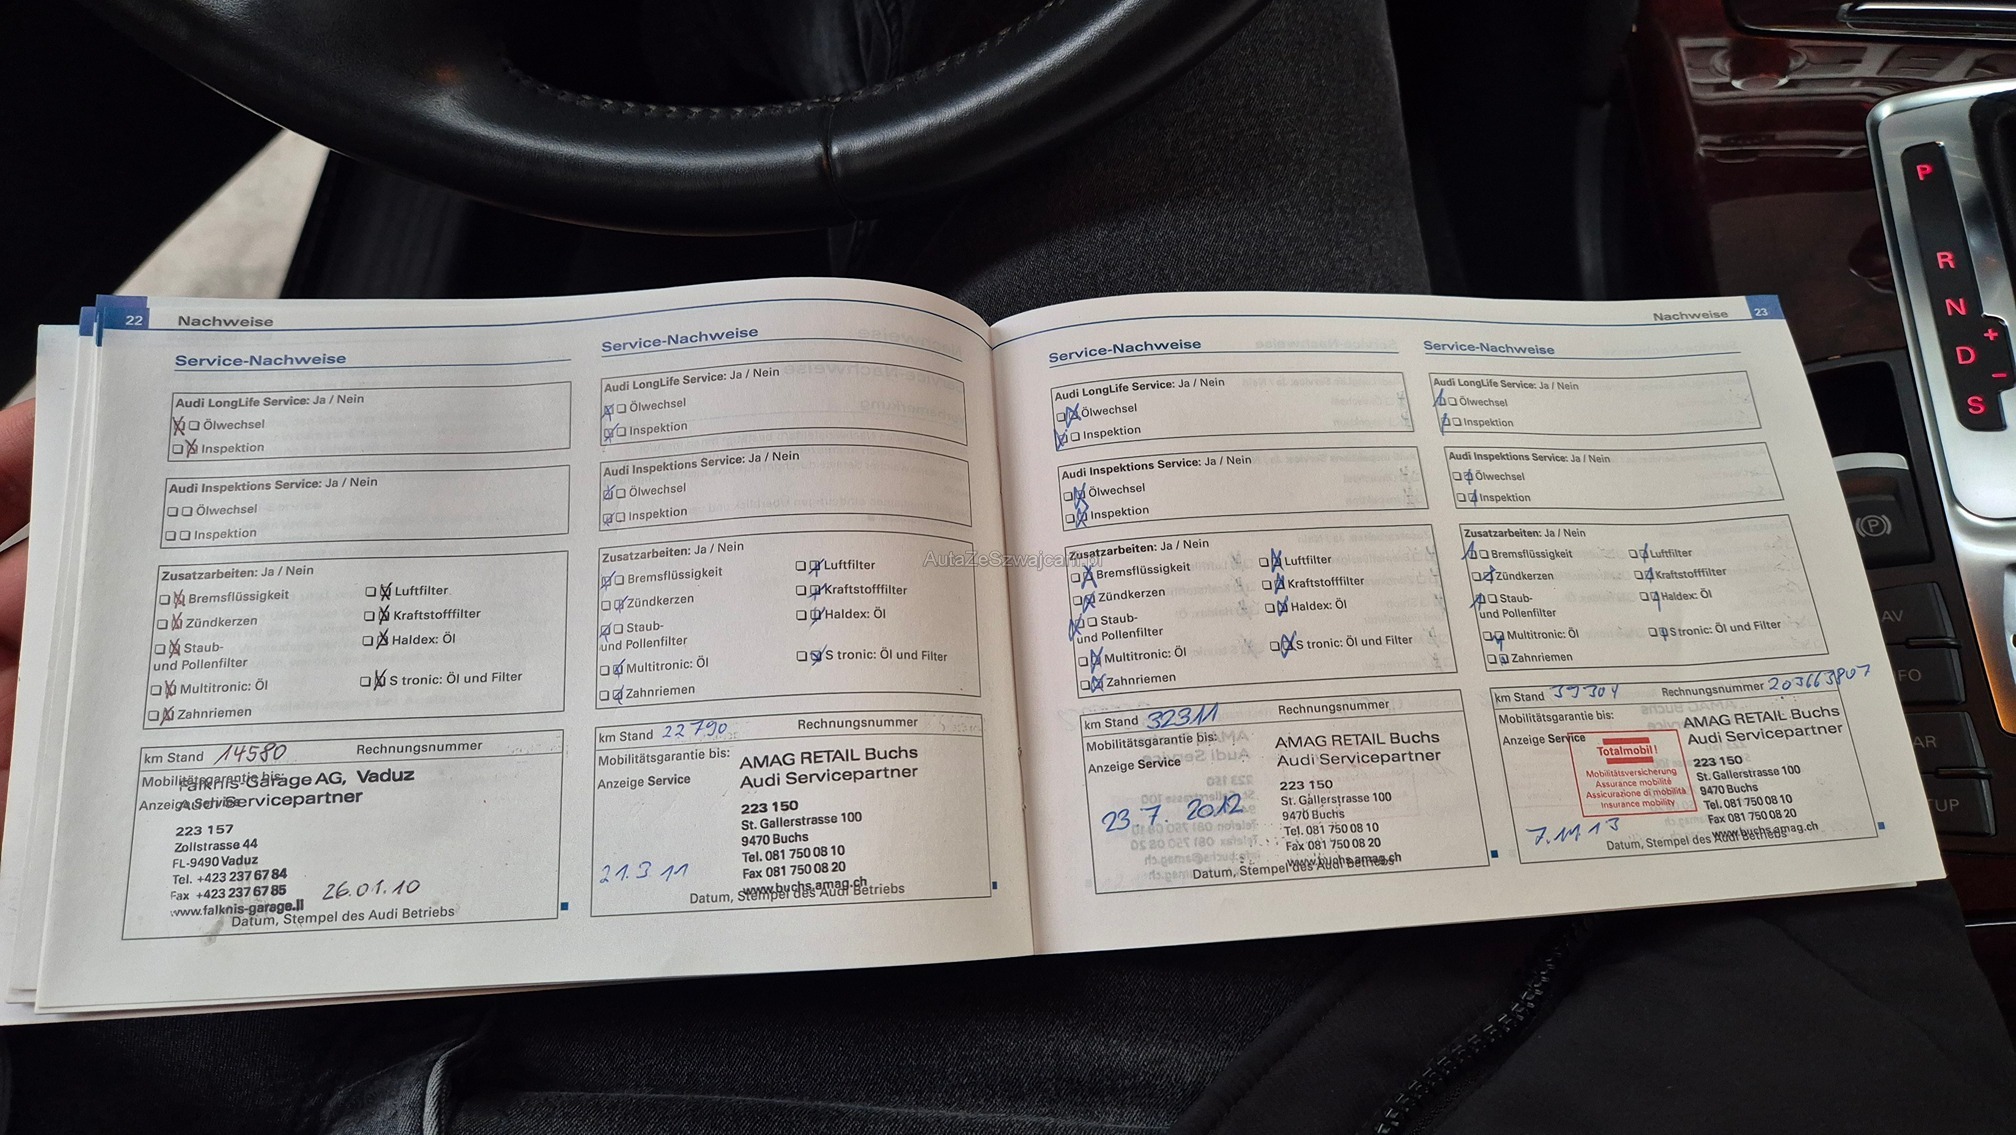 22 Nachweise
Service-Nachweise
Audi LongLife Service: Ja / Nein
Ölwechsel
Inspektion
Audi Inspektions Service: Ja / Nein
Ölwechsel
Inspektion
Zusatzarbeiten: Ja / Nein
Bremsflüssigkeit
Luftfilter
Zündkerzen
Kraftstofffilter
Staub-
und Pollenfilter
Haldex: Öl
Multitronic: Öl
S tronic: Öl und Filter
Zahnriemen
km Stand 14580 Rechnungsnummer
Mobilitätsgarantie bis:
Falknis-Garage AG, Vaduz
Anzeige Service
Audi Servicepartner
223 157
Zollstrasse 44
FL-9490 Vaduz
Tel. +423 237 67 84
Fax +423 237 67 85
26.01.10
www.falknis-garage.li
Datum, Stempel des Audi Betriebs
Service-Nachweise
Audi LongLife Service: Ja / Nein
Ölwechsel
Inspektion
Audi Inspektions Service: Ja / Nein
Ölwechsel
Inspektion
Zusatzarbeiten: Ja / Nein
Bremsflüssigkeit
Luftfilter
Zündkerzen
Kraftstofffilter
Staub-
und Pollenfilter
Haldex: Öl
Multitronic: Öl
S tronic: Öl und Filter
Zahnriemen
km Stand 22790 Rechnungsnummer
Mobilitätsgarantie bis:
AMAG RETAIL Buchs
Anzeige Service
Audi Servicepartner
223 150
St. Gallerstrasse 100
9470 Buchs
Tel. 081 750 08 10
Fax 081 750 08 20
21.3 11
www.buchs.amag.ch
Datum, Stempel des Audi Betriebs
Nachweise 23
Service-Nachweise
Audi LongLife Service: Ja / Nein
Ölwechsel
Inspektion
Audi Inspektions Service: Ja / Nein
Ölwechsel
Inspektion
Zusatzarbeiten: Ja / Nein
Bremsflüssigkeit
Luftfilter
Zündkerzen
Kraftstofffilter
Staub-
und Pollenfilter
Haldex: Öl
Multitronic: Öl
S tronic: Öl und Filter
Zahnriemen
km Stand 32311 Rechnungsnummer
Mobilitätsgarantie bis:
AMAG RETAIL Buchs
Anzeige Service
Audi Servicepartner
223 150
St. Gallerstrasse 100
9470 Buchs
Tel. 081 750 08 10
Fax 081 750 08 20
23.7. 2012
www.buchs.amag.ch
Datum, Stempel des Audi Betriebs
Service-Nachweise
Audi LongLife Service: Ja / Nein
Ölwechsel
Inspektion
Audi Inspektions Service: Ja / Nein
Ölwechsel
Inspektion
Zusatzarbeiten: Ja / Nein
Bremsflüssigkeit
Luftfilter
Zündkerzen
Kraftstofffilter
Staub-
und Pollenfilter
Haldex: Öl
Multitronic: Öl
S tronic: Öl und Filter
Zahnriemen
km Stand 39304 Rechnungsnummer 203663807
Mobilitätsgarantie bis:
AMAG RETAIL Buchs
Anzeige Service
Audi Servicepartner
Totalmobil!
Mobilitätsversicherung
Assurance mobilité
Assicurazione di mobilità
Insurance mobility
223 150
St. Gallerstrasse 100
9470 Buchs
Tel. 081 750 08 10
Fax 081 750 08 20
7.11 13
www.buchs.amag.ch
Datum, Stempel des Audi Betriebs
P
R
N
D
S
+
−
(P)
AV
FO
AR
TUP